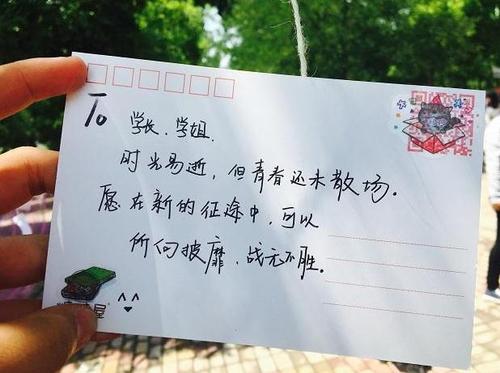 To 学长、学姐,
时光易逝，但青春还未散场。
愿在新的征途中，可以
所向披靡、战无不胜。
屋